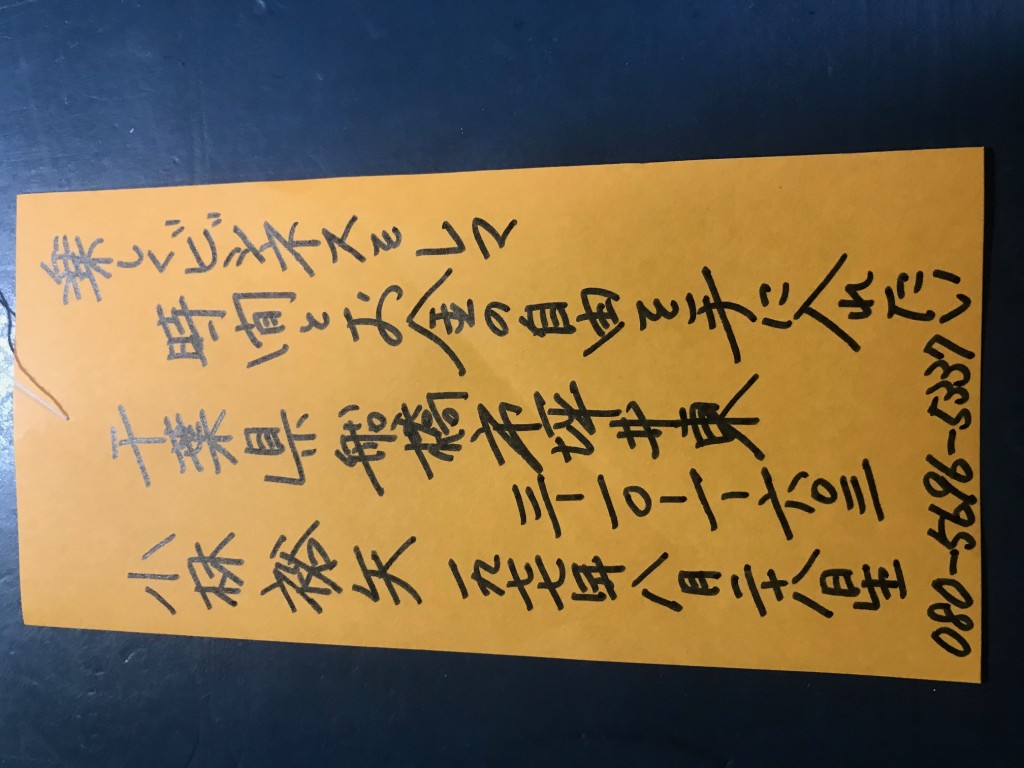 楽しくビジネスをして
時間とお金の自由を手に入れたい
千葉県船橋市坪井東
三-一〇-一-六〇三
小林裕矢 一九七七年八月二十八日生
080-5696-5337